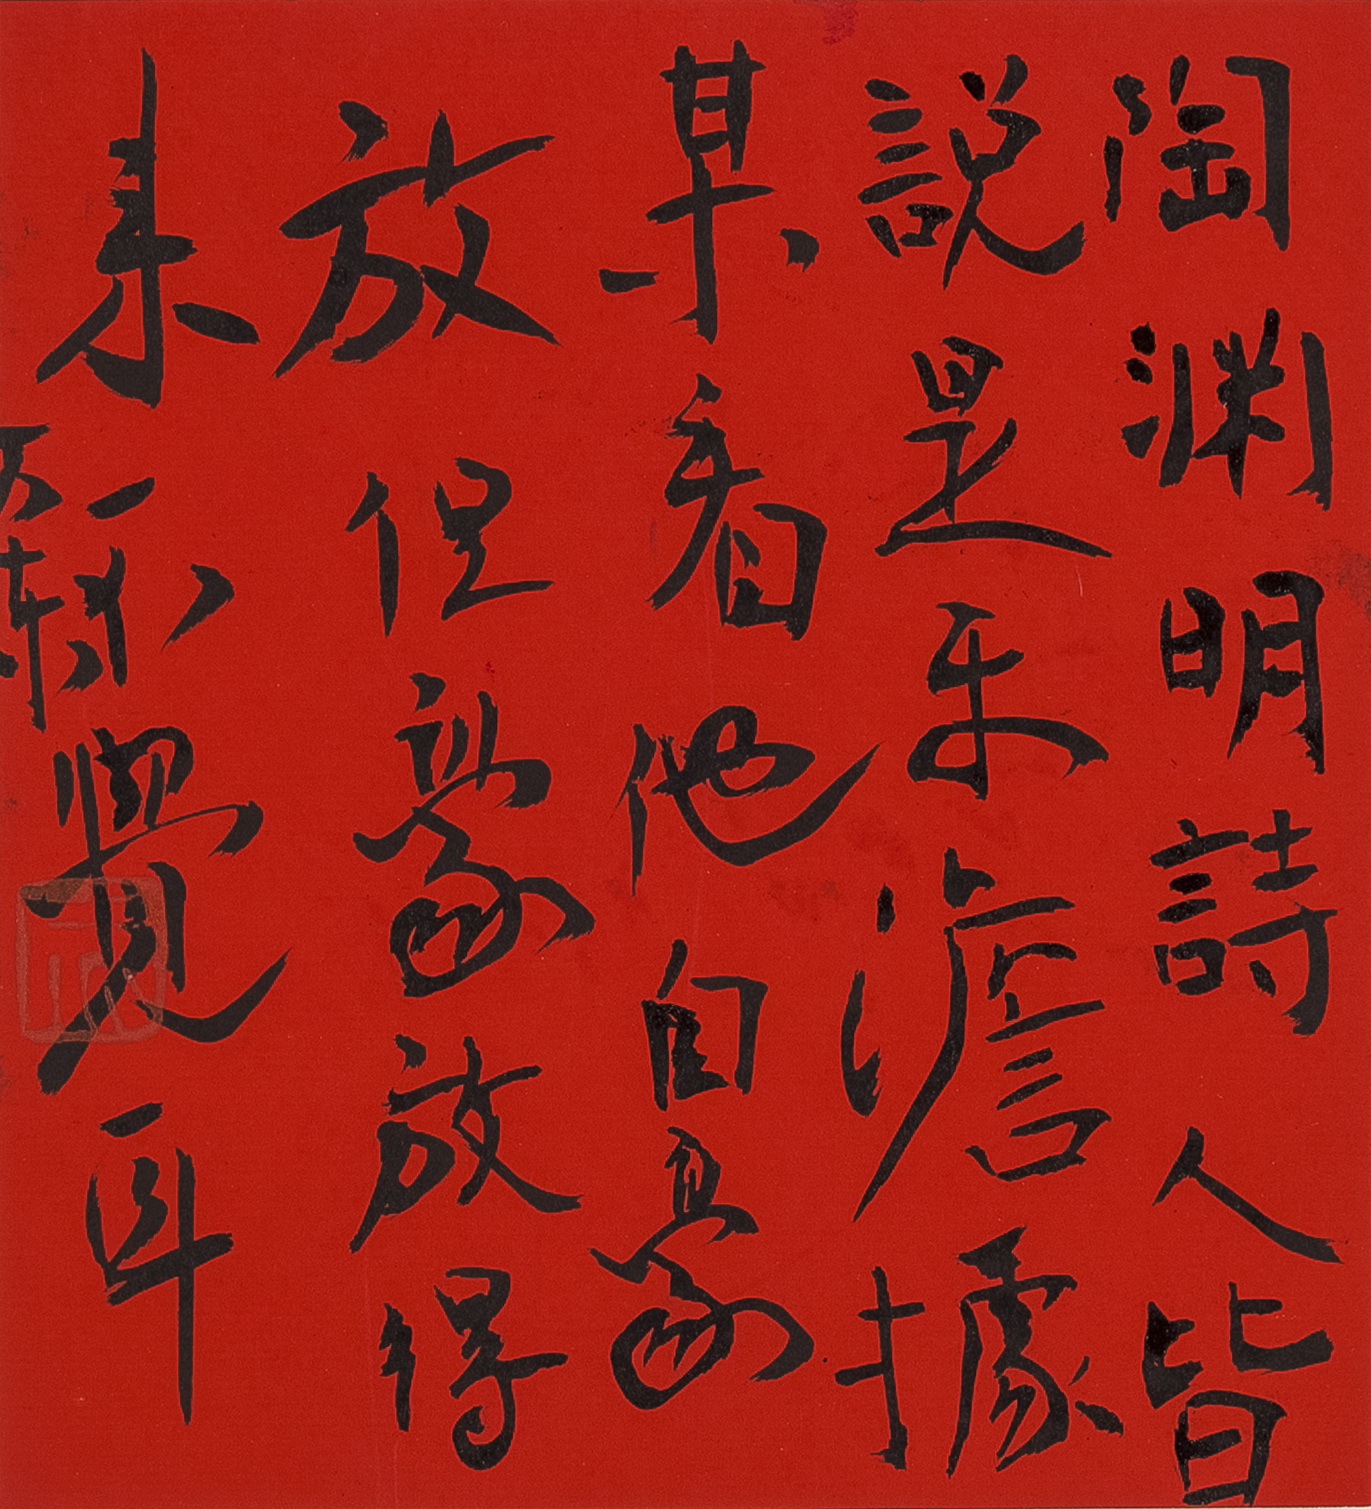 陶渊明詩人皆
説是平澹據
某看他自豪
放但豪放得
来不覺耳